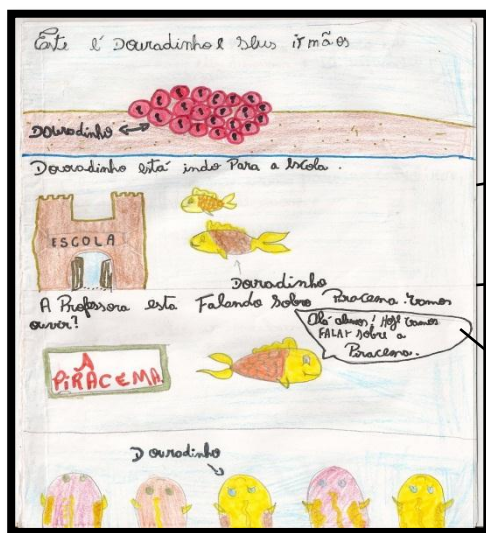 Este é Douradinho e seus irmãos
Douradinho
Douradinho está indo Para a escola.
ESCOLA
Douradinho
A Professora está Falando Sobre Piracema. Vamos
ouvir?
Olá alunos! Hoje vamos
FALAr sobre a
Piracema.
A
PiRACEMA
Douradinho